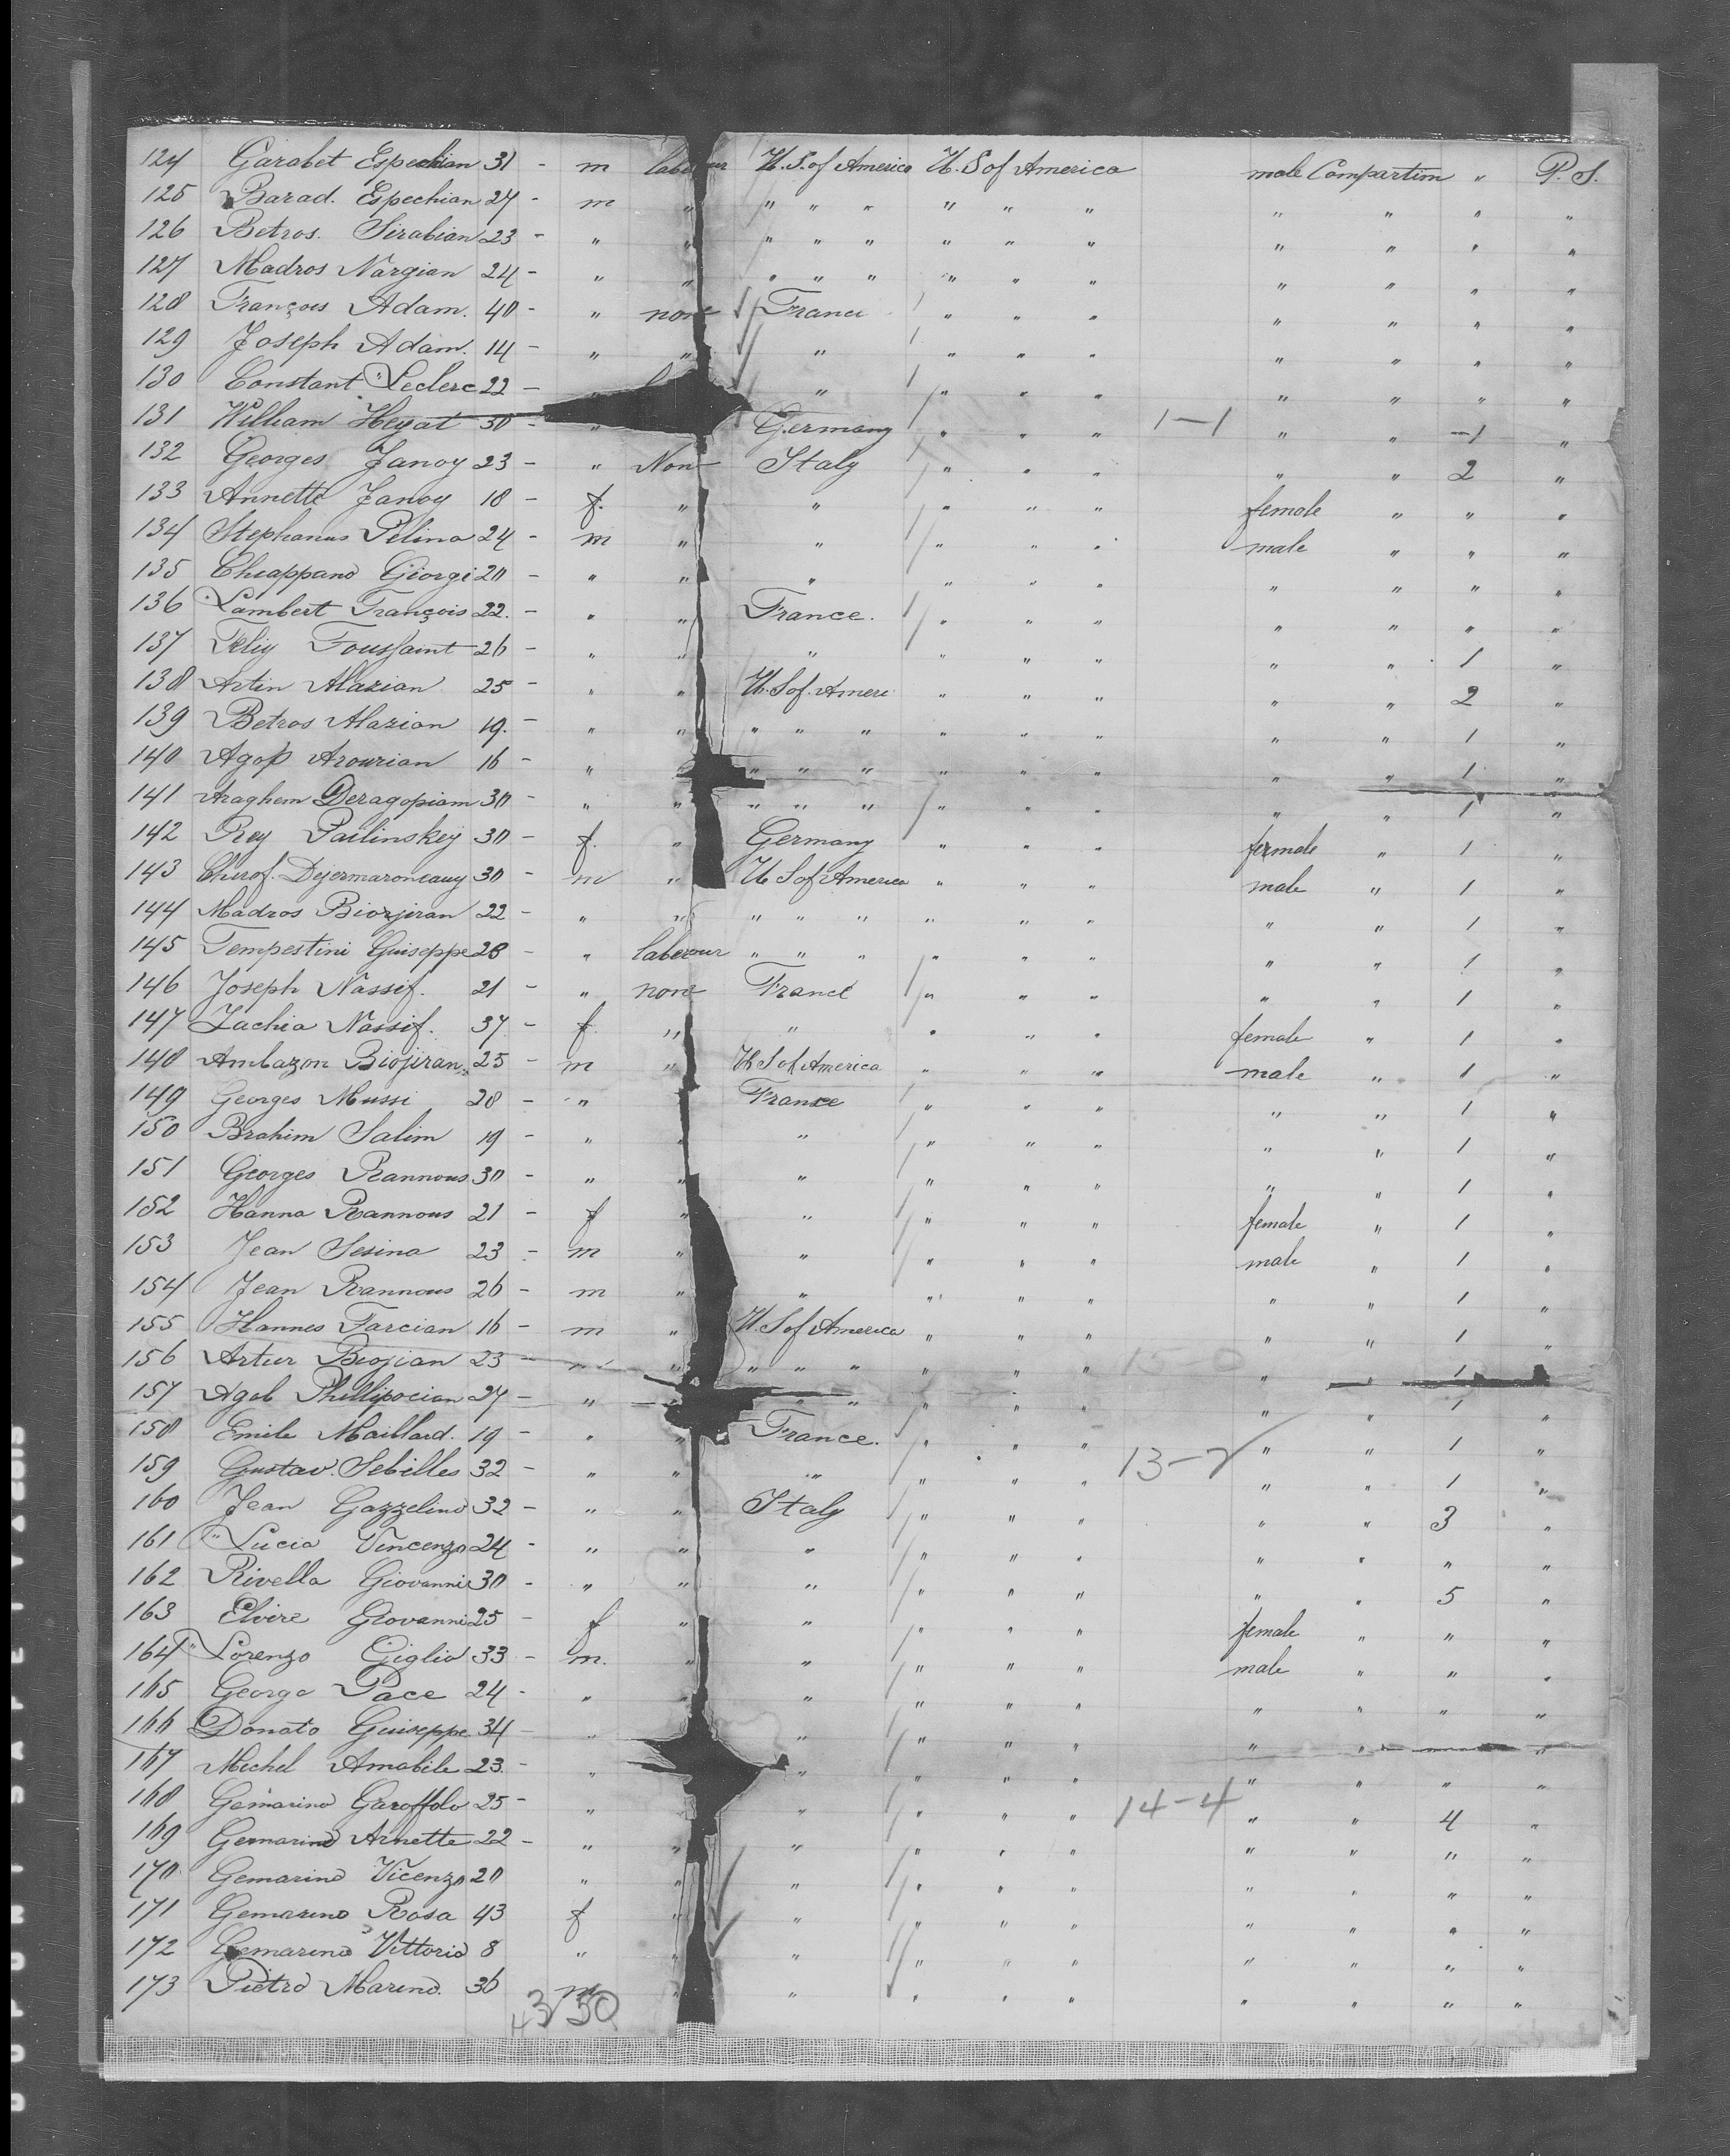 124 Garabet Espechian 31 - m labour U.S. of America U.S of America male Compartim " P.S.
125 Barad. Espechian 27 - m " " " " " " " " " " "
126 Betros. Sirabian 23 - " " " " " " " " " " " "
127 Madros Nargian 24 - " " " " " " " " " " " "
128 François Adam. 40 - " none France " " " " " " "
129 Joseph Adam. 14 - " " " " " " " " " "
130 Constant Leclerc 22 - " " " " " " " "
131 William Heyat 30 - " Germany " " " 1-1 " " -1 "
132 Georges Janoy 23 - " Non Italy " " " " " 2 "
133 Annette Janoy 18 - f. " " " " " female " " "
134 Stephanus Pelina 24 - m " " " " " male " " "
135 Chiappano Giorgi 20 - " " " " " " " " " "
136 Lambert François 22. - " " France. " " " " " " "
137 Feliy Toussaint 26 - " " " " " " " " 1 "
138 Artin Alazian 25 - " " U.S of. Ameri " " " " " 2 "
139 Betros Alazian 19. - " " " " " " " " " " 1 "
140 Agop Arourian 16 - " " " " " " " " " 1 "
141 Araghem Deragopiam 30 - " " " " " " " " " " 1 "
142 Rey Pailinskej 30 - f. " Germany " " " female " 1 "
143 Cherof. Dejermaroneauy 30 - m " U S of America " " " male " 1 "
144 Madros Biorjiran 22 - " " " " " " " " " " 1 "
145 Tempestini Guiseppe 28 - " labour " " " " " " " " 1 "
146 Joseph Nassif. 21 - " none France " " " " " 1 "
147 Zachia Nassif. 37 - f. " " " " " female " 1 "
148 Ambazon Biojiran. 25 - m " U S of America " " " male " 1 "
149 Georges Mussi 28 - " France " " " " " 1 "
150 Brahim Salim 19 - " " " " " " " " 1 "
151 Georges Rannous 30 - " " " " " " " " 1 "
152 Hanna Rannous 21 - f " " " " " female " 1 "
153 Jean Sesina 23 - m " " " " " male " 1 "
154 Jean Rannous 26 - m " " " " " " " 1 "
155 Hannes Tarcian 16 - m " U.S of America " " " " " 1 "
156 Artur Biojian 23 - m " " " " " " " " 1
157 Agob Phillipocian 27 - " " " " " " " " 1 "
158 Emile Maillard. 19 - " " France. " " " " " 1 "
159 Gustav. Sebilles 32 - " " " " " " 13-2 " " 1 "
160 Jean Gazzelino 32 - " " Italy " " " " " 3 "
161 Lucia Vincenzo 24 - " " " " " " " " " "
162 Rivella Giovanni 30 - " " " " " " " " 5 "
163 Elvire Giovanni 25 - f " " " " " female " " "
164 Lorenzo Giglio 33 - m. " " " " " male " " "
165 George Pace 24 - " " " " " " " " " "
166 Donato Guiseppe 34 - " " " " " " " "
167 Mechel Amabile 23. - " " " " " " " " "
168 Gemarino Garoffolo 25 - " " " " " 14-4 " " 4 "
169 Gemarino Arnette 22 - " " " " " " " " " "
170 Gemarino Vicenzo 20 " " " " " " " " " "
171 Gemarino Rosa 43 f " " " " " " " " "
172 Gemarino Vittorio 8 " " " " " " " " " "
173 Pietro Marino. 36 m " " " " " " " " "